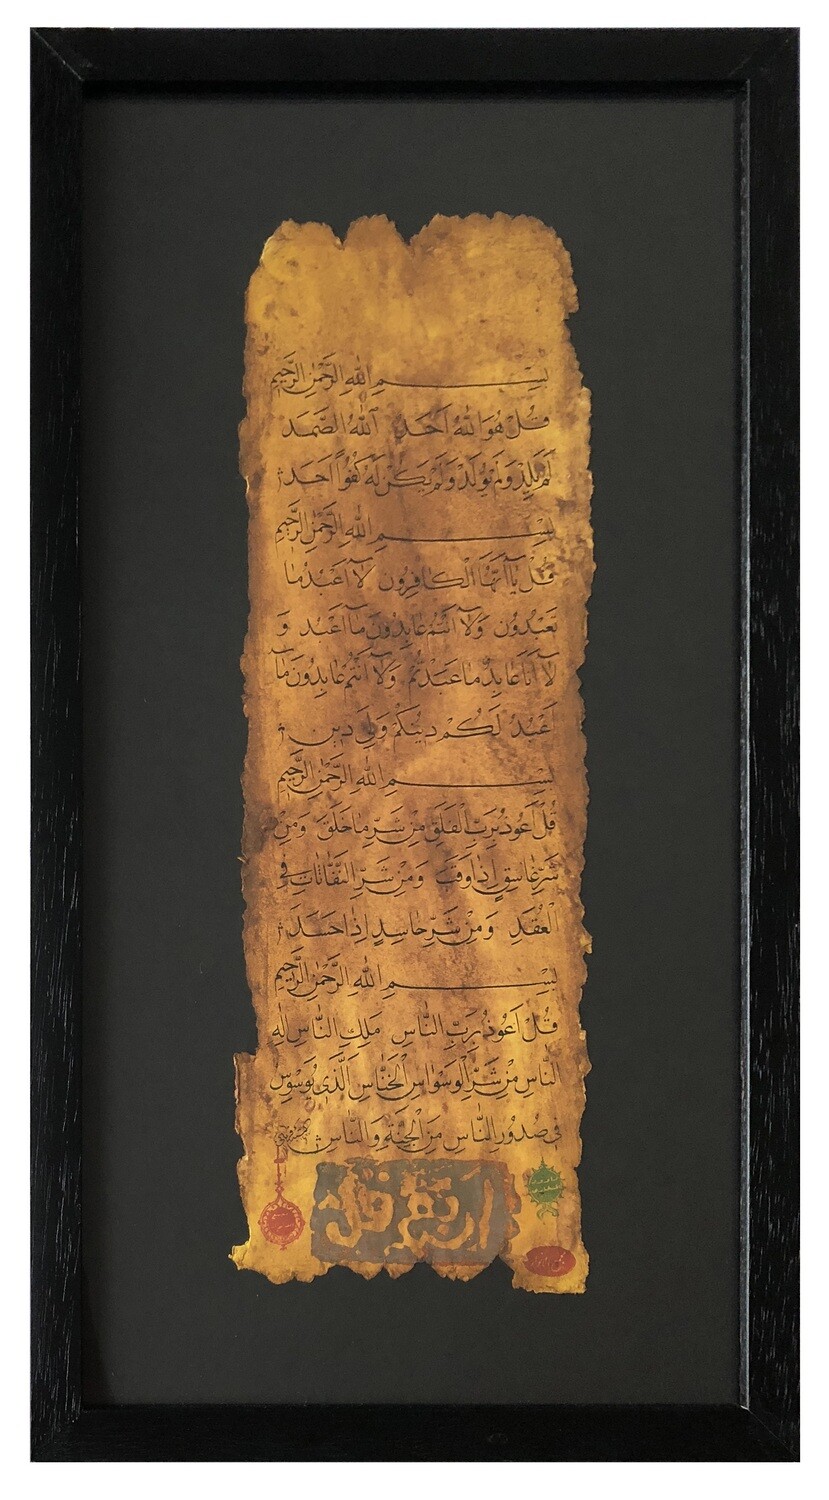 بِسْمِ اللهِ الرَّحْمٰنِ الرَّحِيمِ
قُلْ هُوَ اللهُ اَحَدٌ اَللهُ الصَّمَد
لَمْ يَلِدْ وَلَمْ يُولَدْ وَلَمْ يَكُنْ لَهُ كُفُوًا اَحَد
بِسْمِ اللهِ الرَّحْمٰنِ الرَّحِيمِ
قُلْ يَآ اَيُّهَا الْكَافِرُون لَآ اَعْبُدُ مَا
تَعْبُدُون وَلَآ اَنْتُمْ عَابِدُونَ مَآ اَعْبُد وَ
لَآ اَنَا عَابِدٌ مَا عَبَدْتُمْ وَلَآ اَنْتُمْ عَابِدُونَ مَآ
اَعْبُدُ لَكُمْ دِينُكُمْ وَلِىَ دِينِ
بِسْمِ اللهِ الرَّحْمٰنِ الرَّحِيمِ
قُلْ اَعُوذُ بِرَبِّ الْفَلَقِ مِنْ شَرِّ مَا خَلَقَ وَمِنْ
شَرِّ غَاسِقٍ اِذَا وَقَبَ وَمِنْ شَرِّ النَّفَّاثَاتِ فِى
الْعُقَدِ وَمِنْ شَرِّ حَاسِدٍ اِذَا حَسَدَ
بِسْمِ اللهِ الرَّحْمٰنِ الرَّحِيمِ
قُلْ اَعُوذُ بِرَبِّ النَّاسِ مَلِكِ النَّاسِ اِلٰهِ
النَّاسِ مِنْ شَرِّ الْوَسْوَاسِ الْخَنَّاسِ الَّذِى يُوَسْوِسُ
فِى صُدُورِ النَّاسِ مِنَ الْجِنَّةِ وَالنَّاسِ